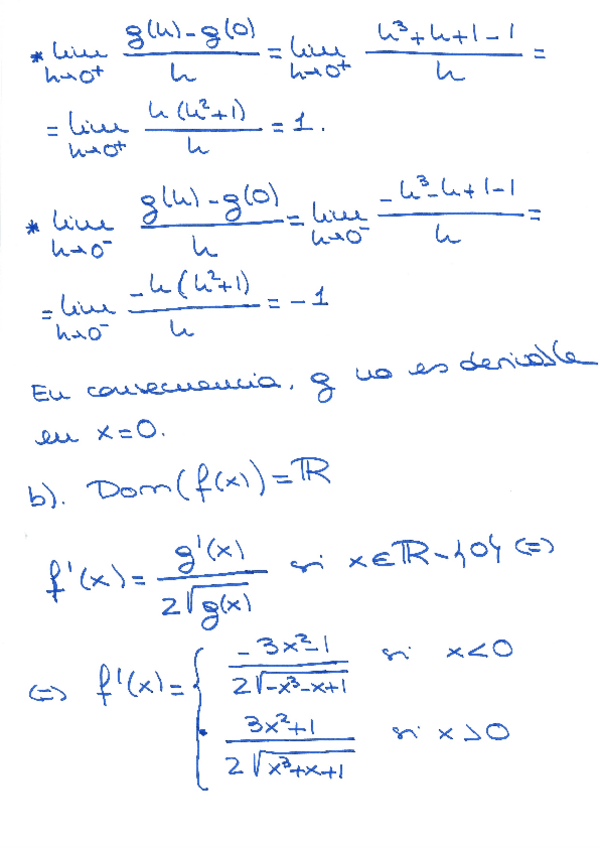 * lim h→0⁺ (g(h)-g(0))/h = lim h→0⁺ (h³+h+1-1)/h =
= lim h→0⁺ h(h²+1)/h = 1.
* lim h→0⁻ (g(h)-g(0))/h = lim h→0⁻ (-h³-h+1-1)/h =
= lim h→0⁻ -h(h²+1)/h = -1
En consecuencia, g no es derivable
en x=0.
b). Dom(f(x))=ℝ
f'(x)= g'(x)/(2√g(x)) si x∈ℝ-{0} ⇔
⇔ f'(x)= { (-3x²-1)/(2√(-x³-x+1)) si x<0
(3x²+1)/(2√(x³+x+1)) si x>0